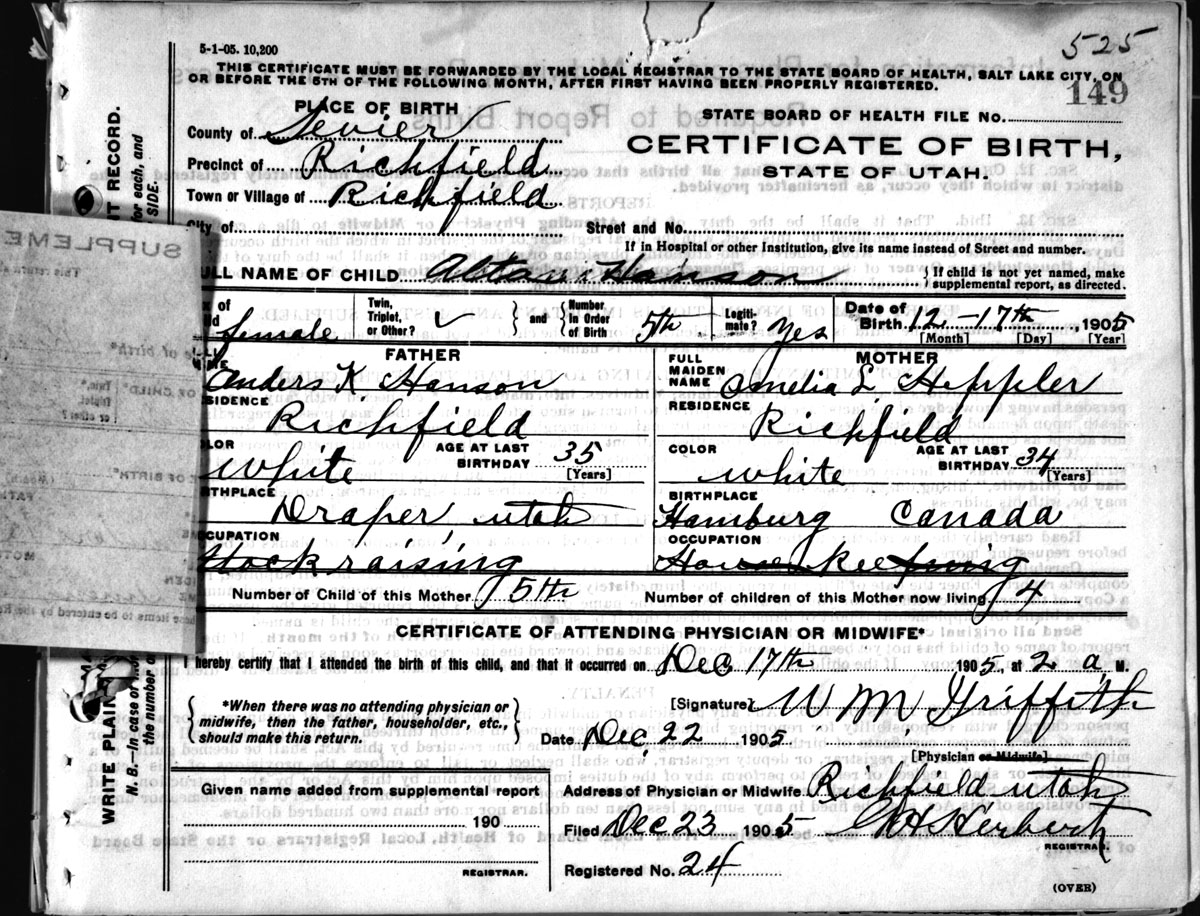 525
5-1-05. 10,200
THIS CERTIFICATE MUST BE FORWARDED BY THE LOCAL REGISTRAR TO THE STATE BOARD OF HEALTH, SALT LAKE CITY, ON
OR BEFORE THE 5TH OF THE FOLLOWING MONTH, AFTER FIRST HAVING BEEN PROPERLY REGISTERED.
149
PLACE OF BIRTH
STATE BOARD OF HEALTH FILE No.
County of Sevier
CERTIFICATE OF BIRTH,
Precinct of Richfield
STATE OF UTAH.
Town or Village of Richfield
City of
Street and No.
If in Hospital or other Institution, give its name instead of Street and number.
ULL NAME OF CHILD Hanson
If child is not yet named, make supplemental report, as directed.
female
Twin, Triplet, or Other?
and Number in Order of Birth 5th
Legitimate? Yes
Date of Birth 12-17th, 1905
[Month] [Day] [Year]
FATHER
Anders K Hanson
SIDENCE
Richfield
OLOR White
AGE AT LAST BIRTHDAY 35
[Years]
RTHPLACE
Draper, utah
CUPATION
Stock raising
MOTHER
FULL MAIDEN NAME Amelia L. Heppler
RESIDENCE
Richfield
COLOR white
AGE AT LAST BIRTHDAY 34
[Years]
BIRTHPLACE
Hamburg Canada
OCCUPATION
House keeping
Number of Child of this Mother 5th
Number of children of this Mother now living 4
CERTIFICATE OF ATTENDING PHYSICIAN OR MIDWIFE*
I hereby certify that I attended the birth of this child, and that it occurred on Dec 17th 1905, at 2 a M.
*When there was no attending physician or midwife, then the father, householder, etc., should make this return.
[Signature] W M Griffith
Date Dec, 22, 1905
[Physician or Midwife]
Given name added from supplemental report
190
REGISTRAR.
Address of Physician or Midwife Richfield utah
Filed Dec 23 1905 Herbert
REGISTRAR.
Registered No. 24
(OVER)
WRITE PLAIN
T RECORD.
N. B.—In case of mo
for each, and
the number o
SIDE.
SUPPLEME